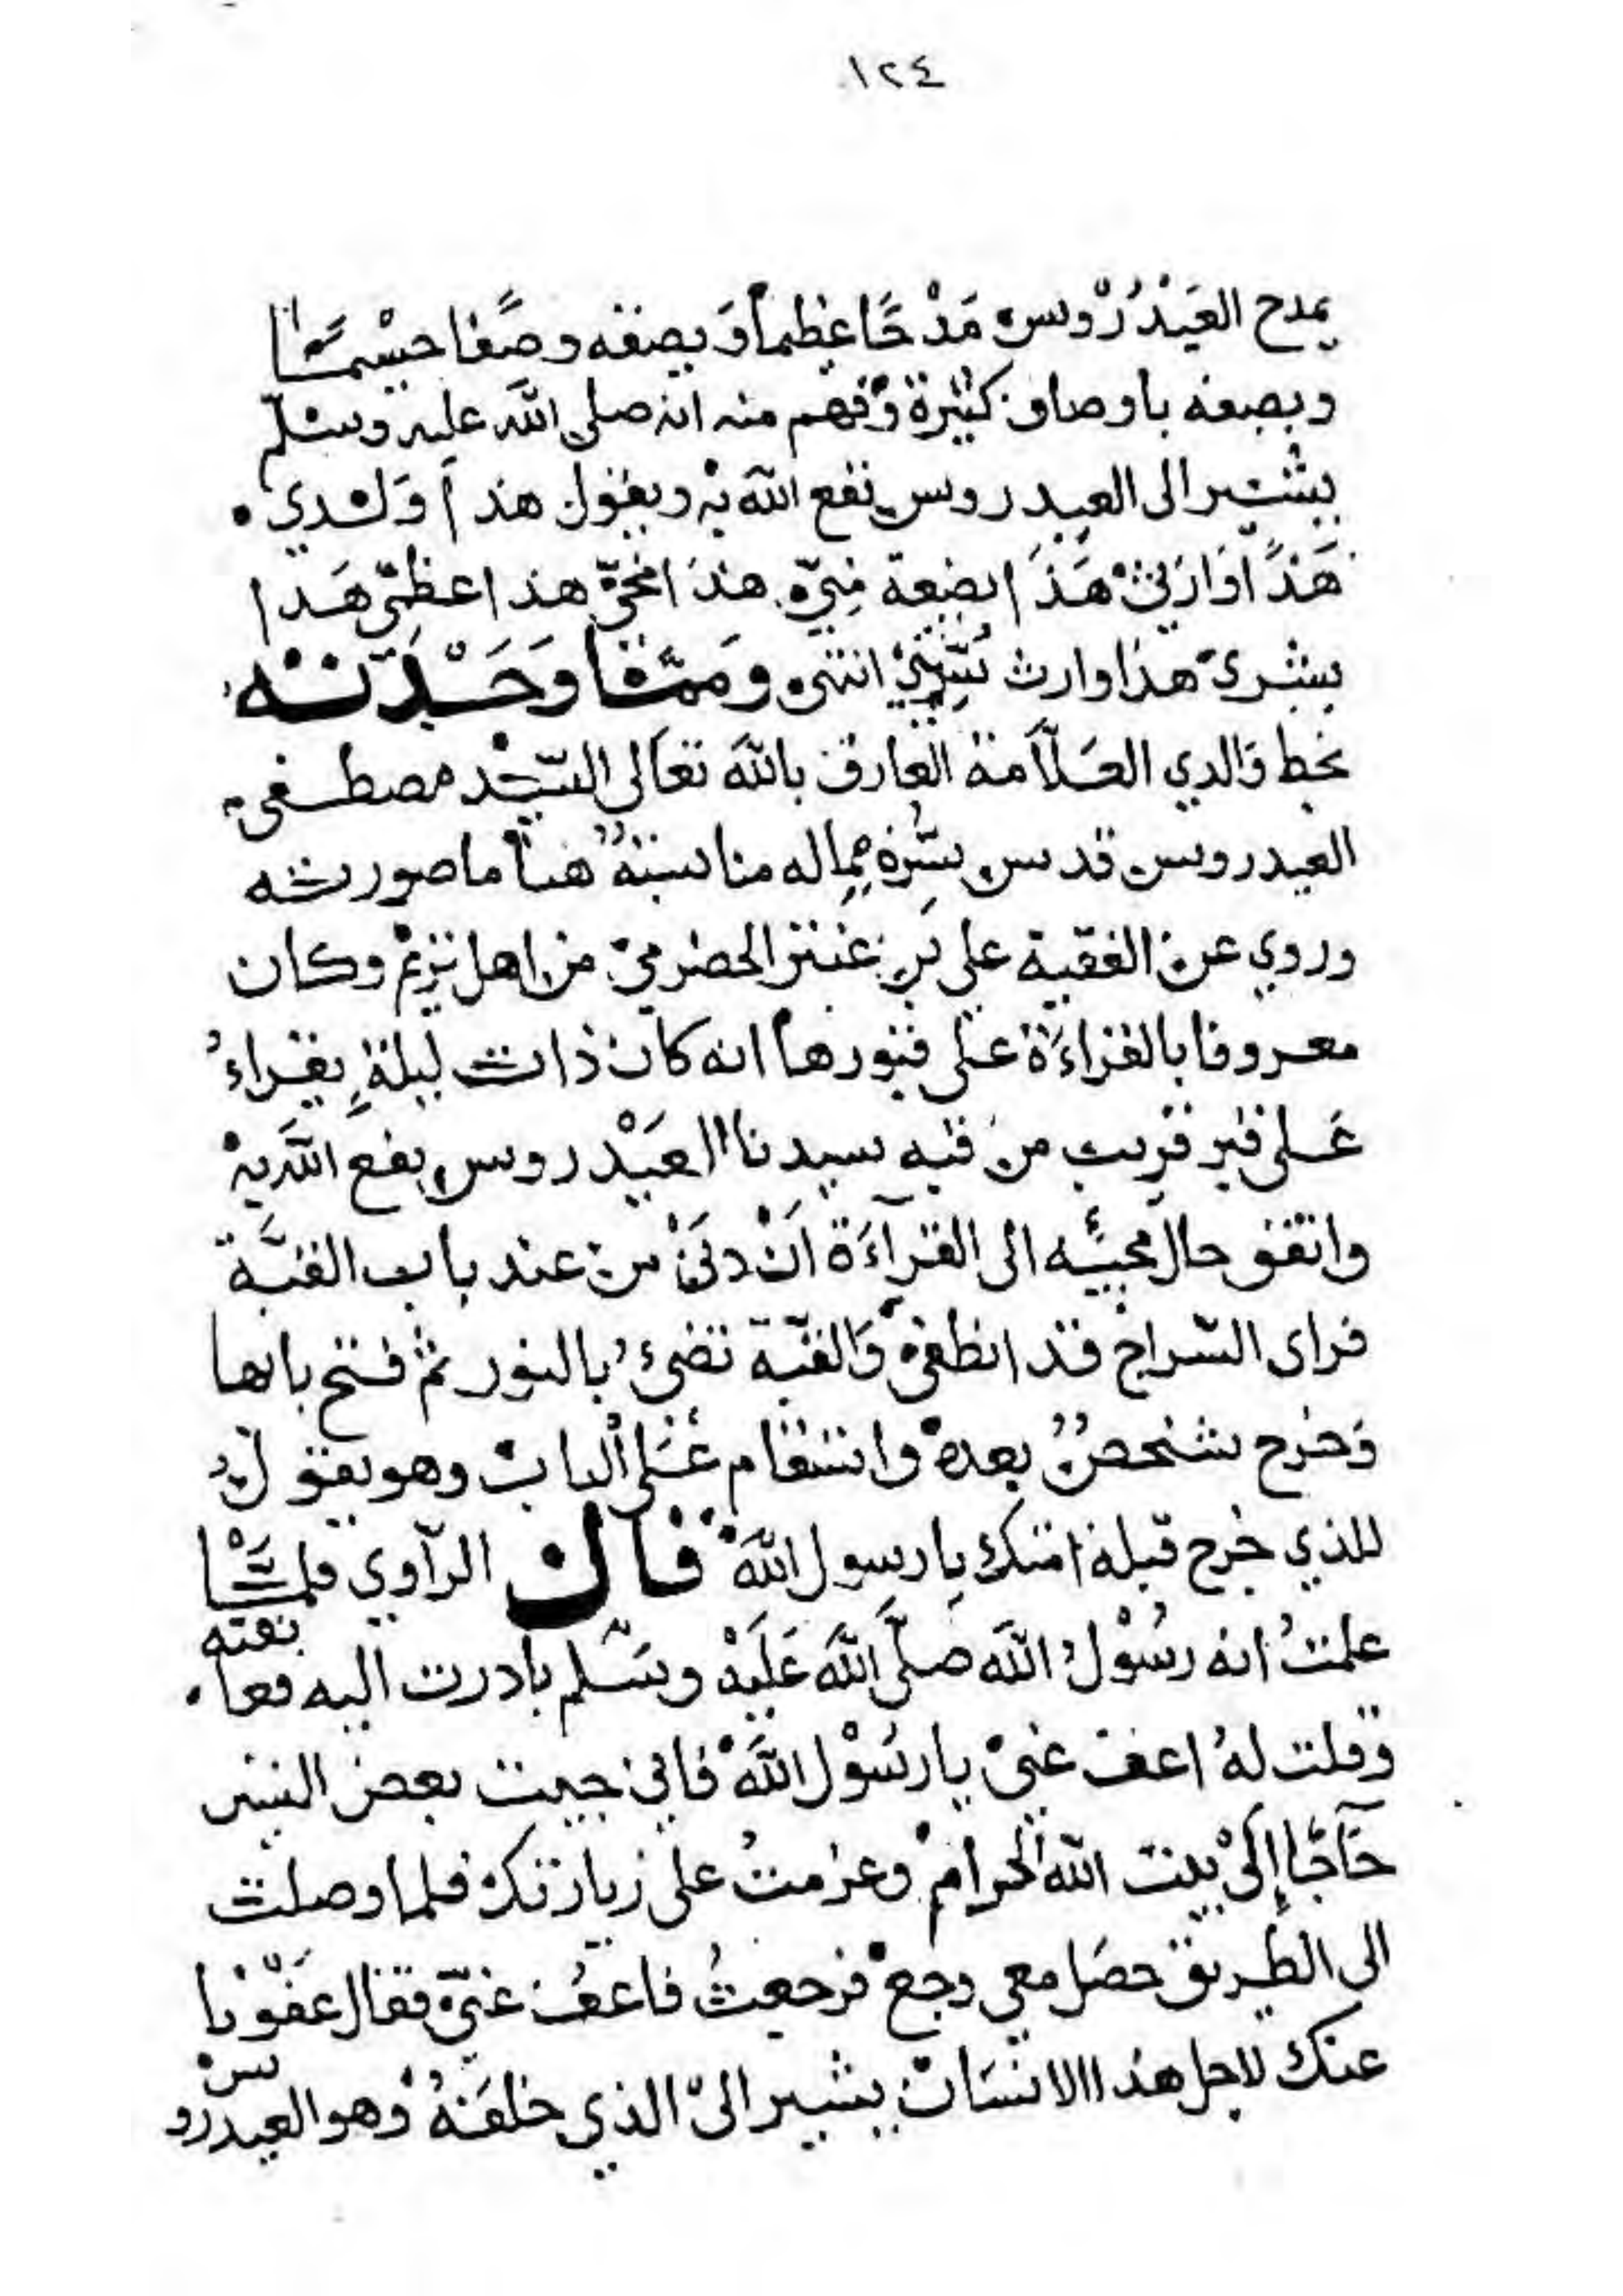 ١٢٤
يمدح العَيْدُرُوس مَدْحًا عظيمًا وَيصفه وصفًا جسيمًا
ويصفه باوصاف كثيرة وفهم منه انه صلى الله عليه وسلم
يشير الى العيدروس نفع الله به ويقول هذا وَلدي
هَذَا وَارثي هَذَا بضعة مِنّي هذا مخي هذا عظمي هَذا
بشري هذا وارث انتهى وَممّا وَجَدْتُه
بخط وَالدي العَلّامة العارف بالله تعَالى السّيد مصطفى
العيدروس قدس سرّه مماله مناسبةٌ هنا ما صورته
وروي عن الفقيه علي بن عنتر الحضرمي من اهل تريم وكان
معروفا بالقراءَة على قبورها انه كان ذات ليلةٍ يقراءُ
عَلى قبر قريب من قبه سيدنا العَيْدروس نفع الله به
واتفق حال مجيئه الى القرآءَة اَنْ دَنَى من عند باب القبَّة
فراى السّراج قد انطفى وَالقبّة تضيءُ بالنور ثم فتح بابها
وَخرج شخصٌ بعده واستقام عَلى الباب وهو يقول
للذي خرج قبله امتك يا رسول الله قال الراوي فلمّا
علمتُ انه رسُوْل الله صلَّى اللهَ عَلَيْه وسَلم بادرت اليه فعانقته
وقلت لهُ اعف عنيْ يا رسُوْل اللهَ فاني جيت بعض السنين
حَآجًّا إِلَىْ بيت الله الحرام وعزمتُ على زيارتك فلما وصلت
الى الطريق حصَل معي وجع فرجعتُ فاعفُ عنيّ فقال عفَوْنا
عنك لاجل هذا الانسَان يشير الىْ الذي خلفَهُ وهو العيدروس